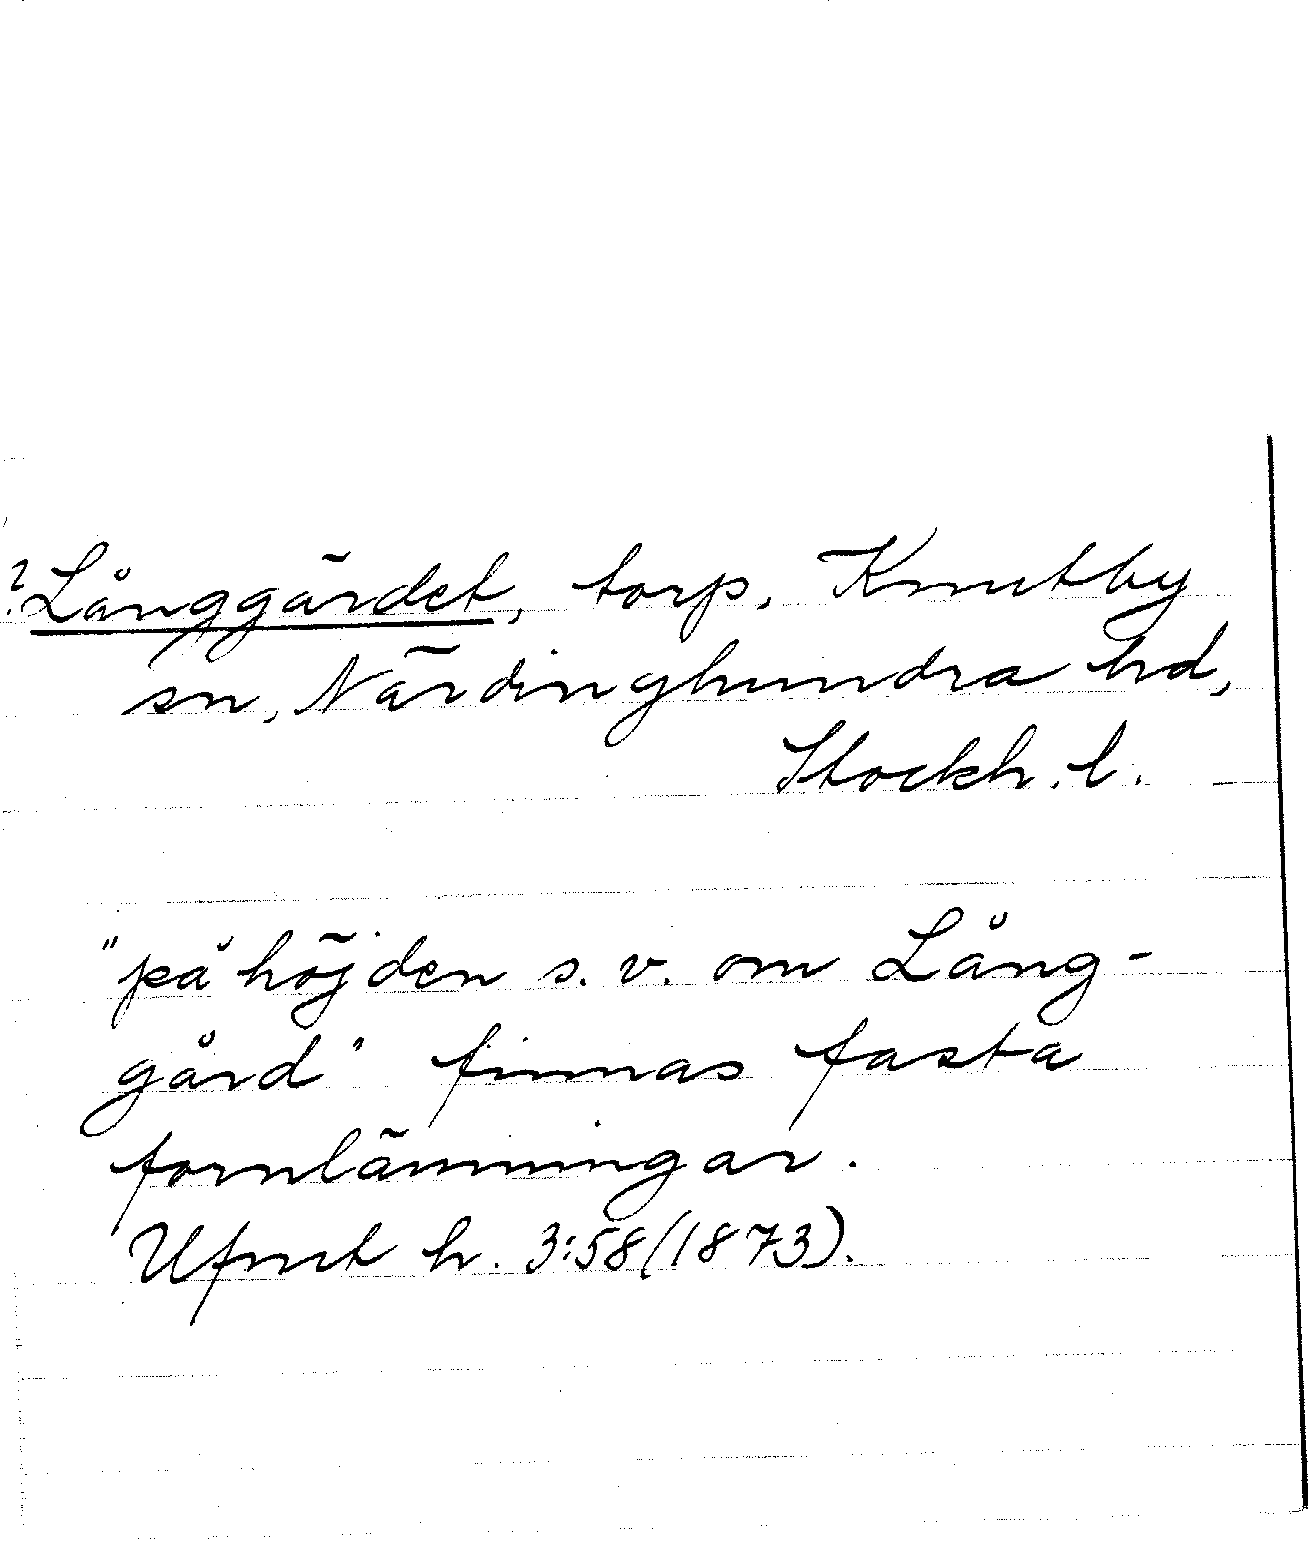 ? Långgärdet, torp, Knutby
sn, Närdinghundra hd,
Stockh. l.
"på höjden s. v. om Lång-
gård" finnas fasta
fornlämningar.
Ufmt h. 3:58 (1873).